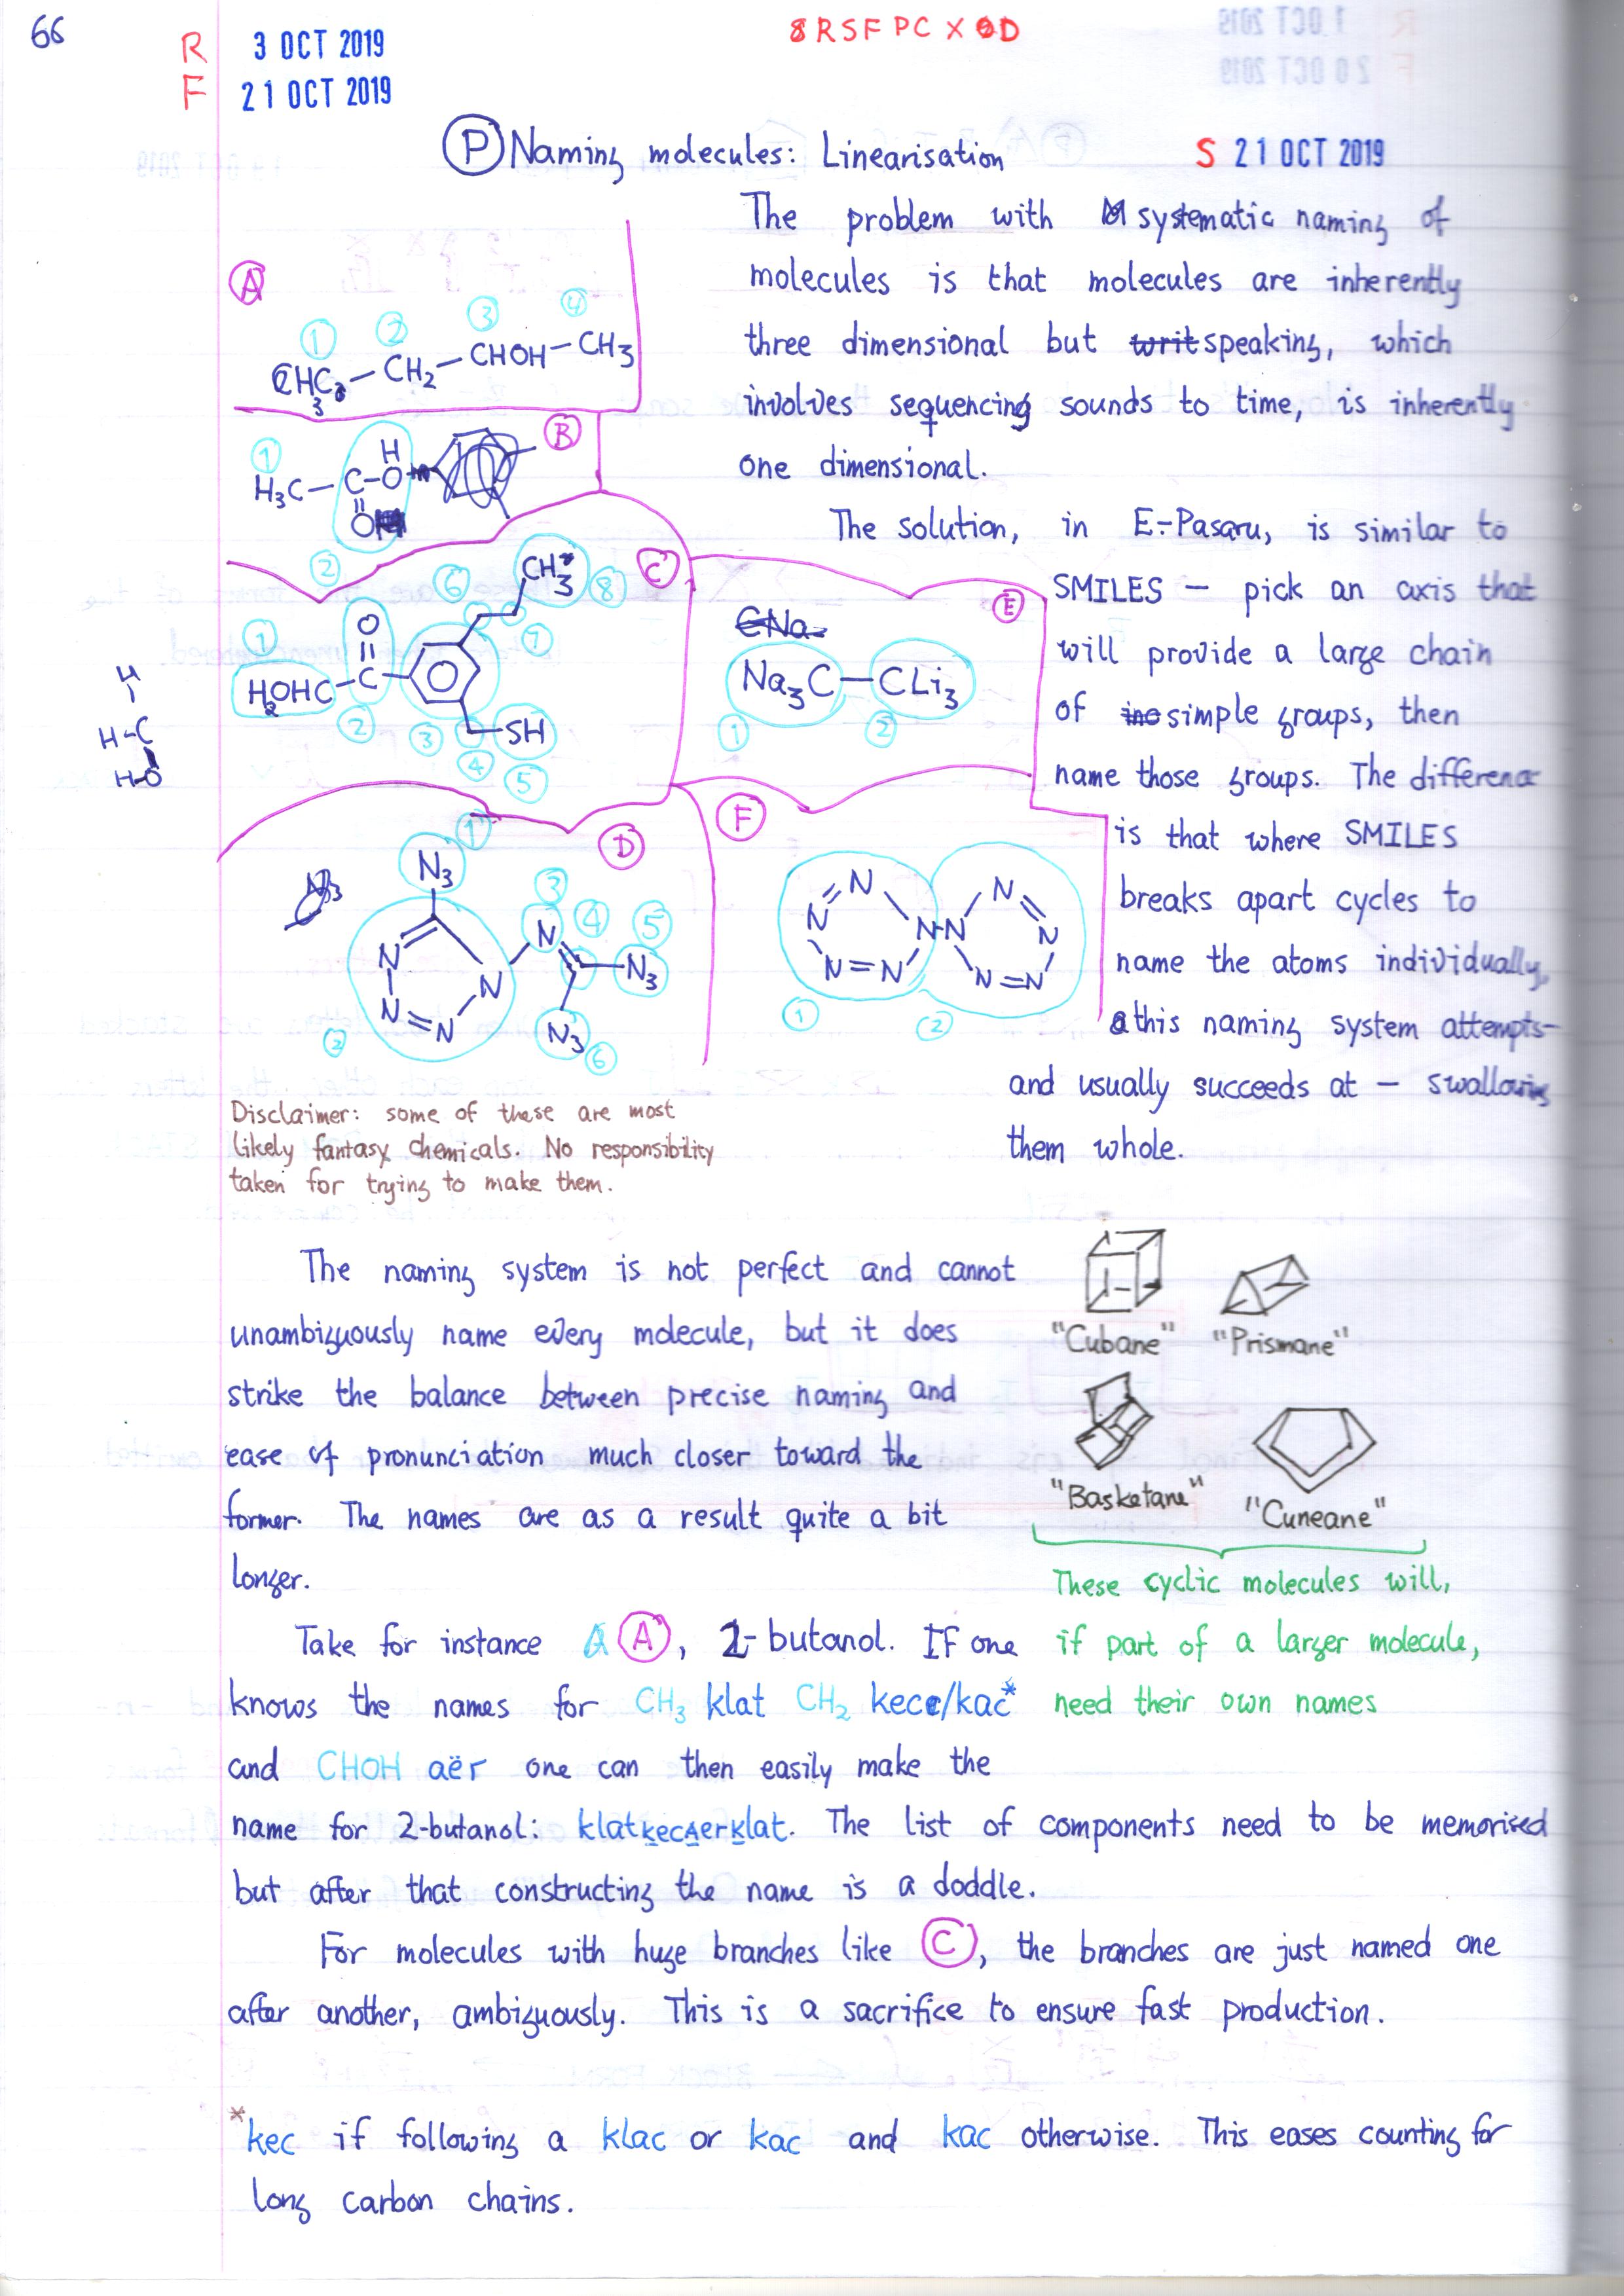 66
R 3 OCT 2019
F 21 OCT 2019
8RSFPCX0D
P Naming molecules: Linearisation
S 21 OCT 2019
The problem with systematic naming of
molecules is that molecules are inherently
three dimensional but writ speaking, which
involves sequencing sounds to time, is inherently
one dimensional.
The solution, in E-Pasaru, is similar to
SMILES – pick an axis that
will provide a large chain
of ino simple groups, then
name those groups. The difference
is that where SMILES
breaks apart cycles to
name the atoms individually,
this naming system attempts–
and usually succeeds at – swallowing
them whole.
A
1 2 3 4
CH3 – CH2 – CHOH – CH3
B
1
H3C – C – O
H
O
2
C
6 CH3 8
1 O 7
H2OHC – C
2 3 SH
4
5
H
H-C
H-O
E
Na3C – CLi3
1 2
D
N3
1
N3
3
4
5
N N
N N3
N N
N=N
2
N3
6
F
N N
N N
N N-N N
N=N N=N
1 2
Disclaimer: some of these are most
likely fantasy chemicals. No responsibility
taken for trying to make them.
The naming system is not perfect and cannot
unambiguously name every molecule, but it does
strike the balance between precise naming and
ease of pronunciation much closer toward the
former. The names are as a result quite a bit
longer.
"Cubane" "Prismane"
"Basketane" "Cuneane"
These cyclic molecules will,
if part of a larger molecule,
need their own names
Take for instance A A, 2-butanol. If one
knows the names for CH3 klat CH2 kec/kac*
and CHOH aër one can then easily make the
name for 2-butanol: klatkecaerklat. The list of components need to be memorised
but after that constructing the name is a doddle.
For molecules with huge branches like C, the branches are just named one
after another, ambiguously. This is a sacrifice to ensure fast production.
*kec if following a klac or kac and kac otherwise. This eases counting for
long carbon chains.